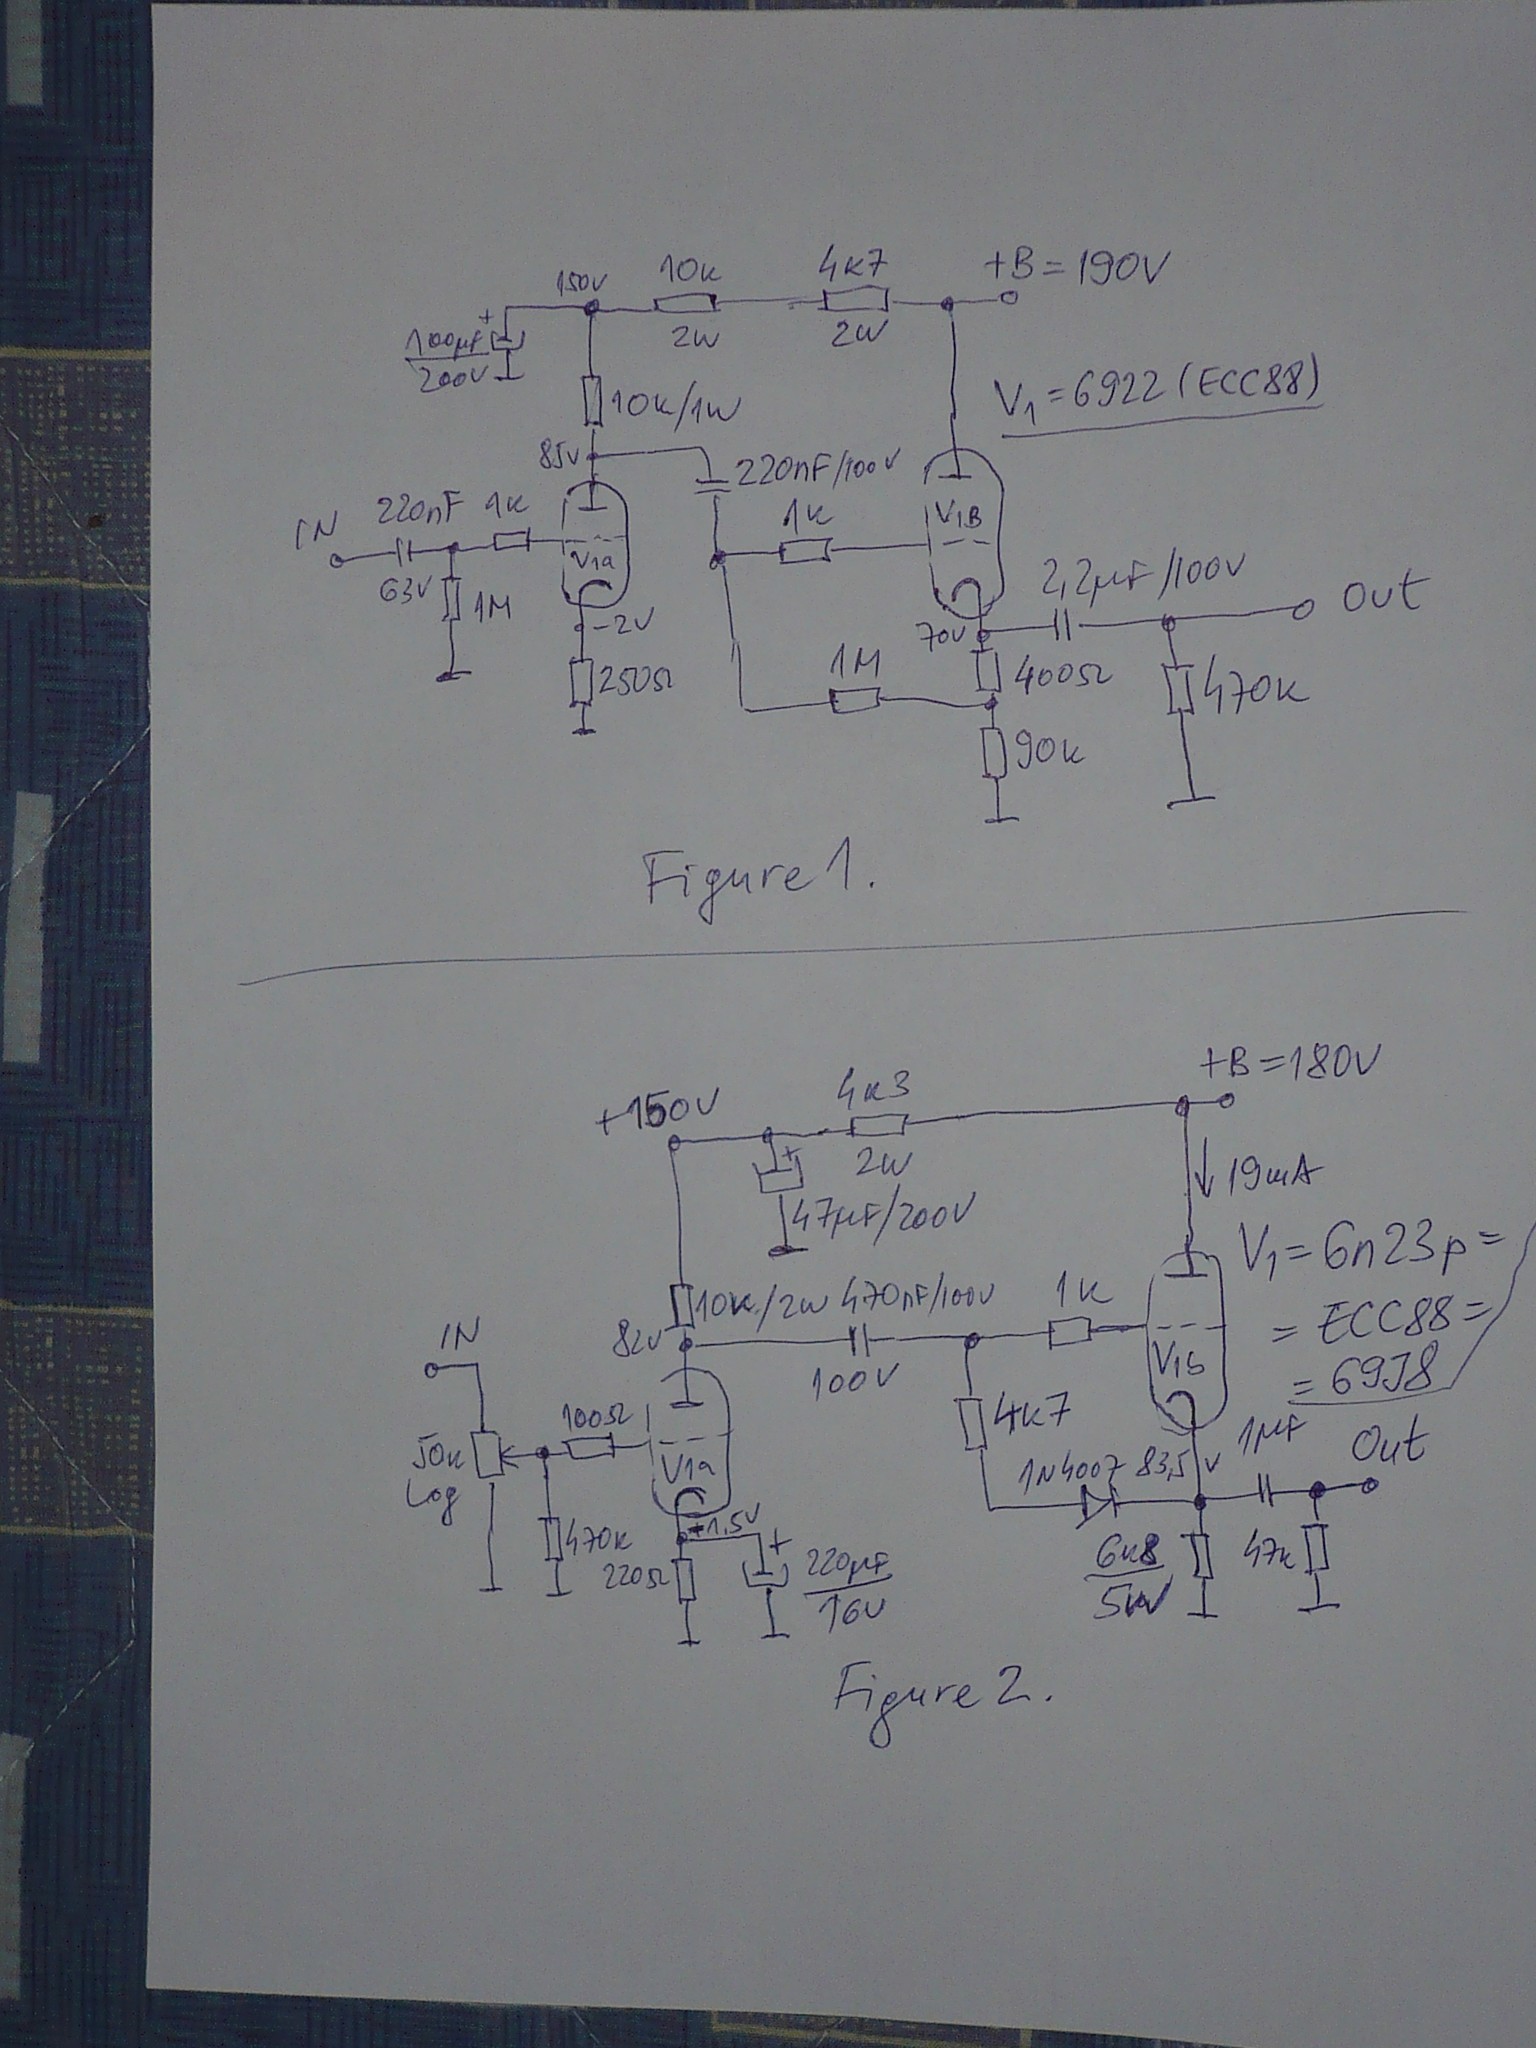 150V
10K
4K7
+B=190V
2W
2W
+
100µF
200V
10K/1W
V1=6922(ECC88)
85V
220nF/100V
IN
220nF
1K
1K
V1B
V1a
63V
1M
2,2µF/100V
Out
-2V
70V
250Ω
1M
400Ω
470K
90K
Figure 1.
+B=180V
+150V
4K3
2W
+
19mA
47µF/200V
V1=6n23p=
10K/2W
470nF/100V
1K
=ECC88=
82V
100V
V1b
=69J8
IN
100Ω
4K7
1µF
Out
50K
Log
V1a
1N4007
83,5V
+1.5V
+
470K
220Ω
220µF
16V
6K8
5W
47K
Figure 2.